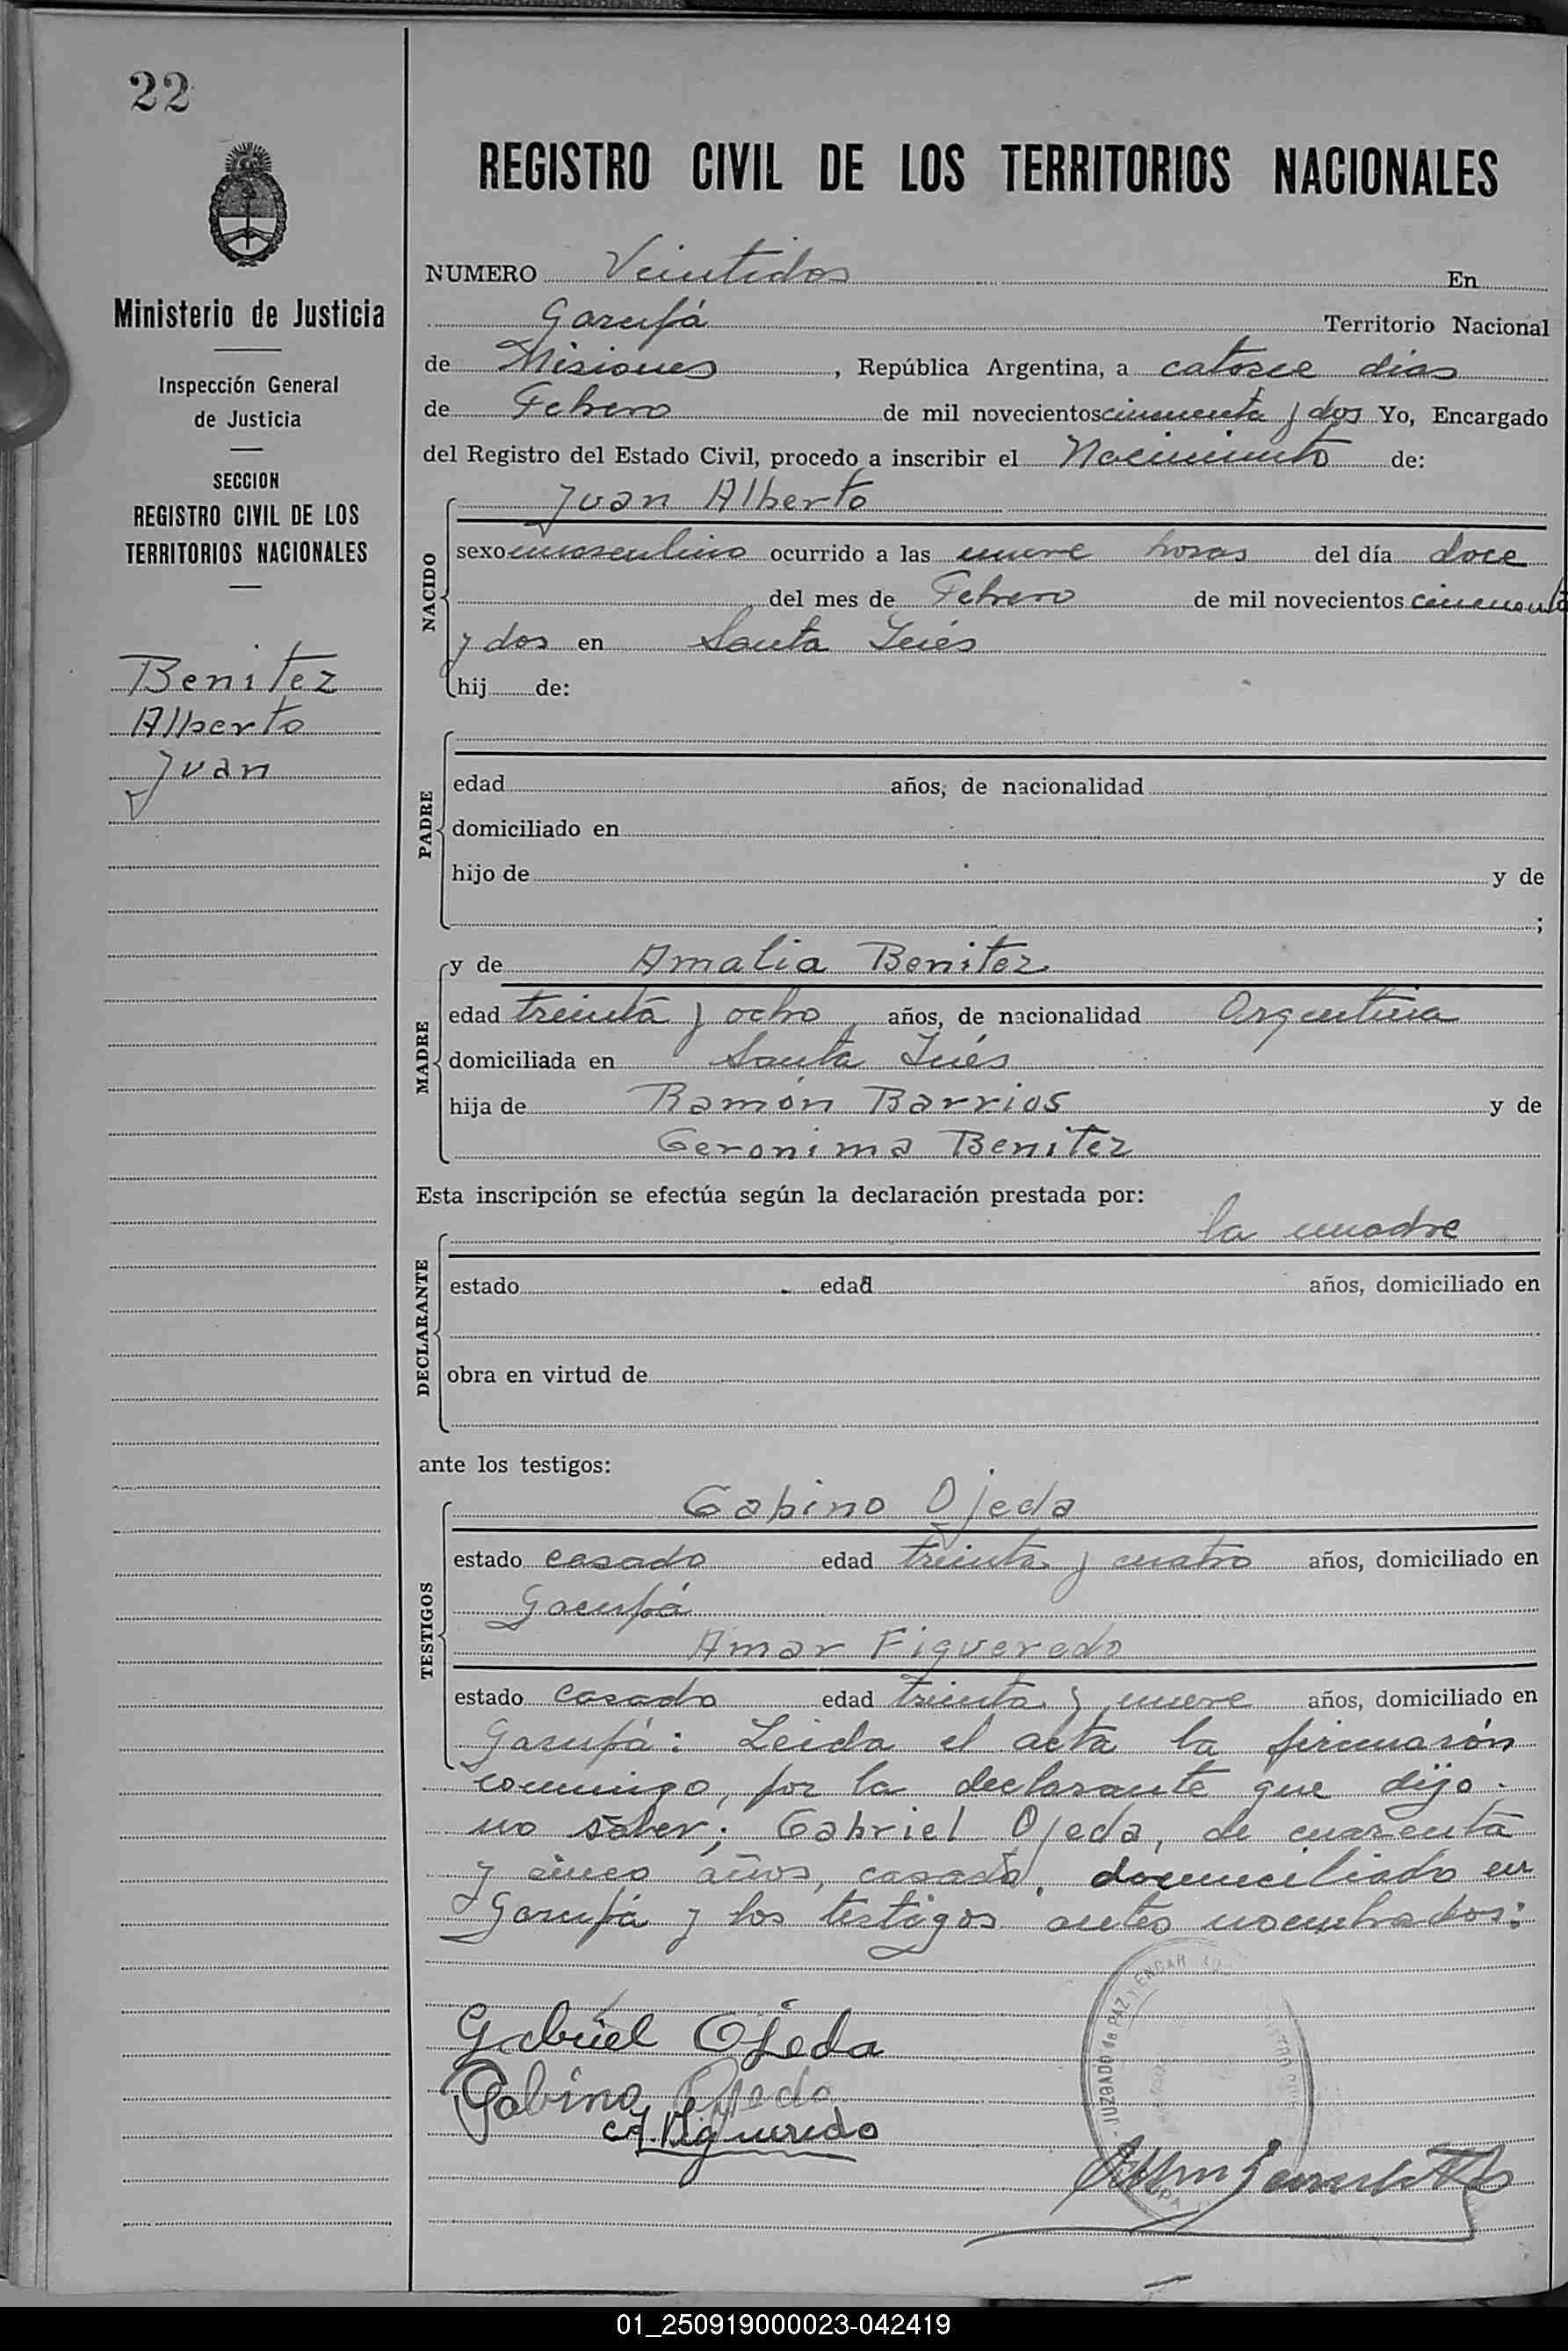 22
REGISTRO CIVIL DE LOS TERRITORIOS NACIONALES
Ministerio de Justicia
Inspección General
de Justicia
SECCION
REGISTRO CIVIL DE LOS
TERRITORIOS NACIONALES
Benitez
Alberto
Juan
NUMERO Veintidos En
Garupá Territorio Nacional
de Misiones, República Argentina, a catorce dias
de Febrero de mil novecientos cincuenta y dos Yo, Encargado
del Registro del Estado Civil, procedo a inscribir el Nacimiento de:
NACIDO
Juan Alberto
sexo masculino ocurrido a las nueve horas del día doce
del mes de Febrero de mil novecientos cincuenta
y dos en Santa Inés
hij de:
PADRE
edad años, de nacionalidad
domiciliado en
hijo de y de
;
MADRE
y de Amalia Benitez
edad treinta y ocho años, de nacionalidad Argentina
domiciliada en Santa Inés
hija de Ramón Barrios y de
Geronima Benitez
Esta inscripción se efectúa según la declaración prestada por:
DECLARANTE
la madre
estado edad años, domiciliado en
obra en virtud de
ante los testigos:
TESTIGOS
Gabino Ojeda
estado casado edad treinta y cuatro años, domiciliado en
Garupá
Amar Figueredo
estado casado edad treinta y nueve años, domiciliado en
Garupá: Leida el acta la firmarón
conmigo, por la declarante que dijo
no saber; Gabriel Ojeda, de cuarenta
y cinco años, casado, domiciliado en
Garupá y los testigos antes nombrados:
Gabriel Ojeda
Gabino Ojeda
Figueredo
JUZGADO de PAZ y ENCAR
01_250919000023-042419